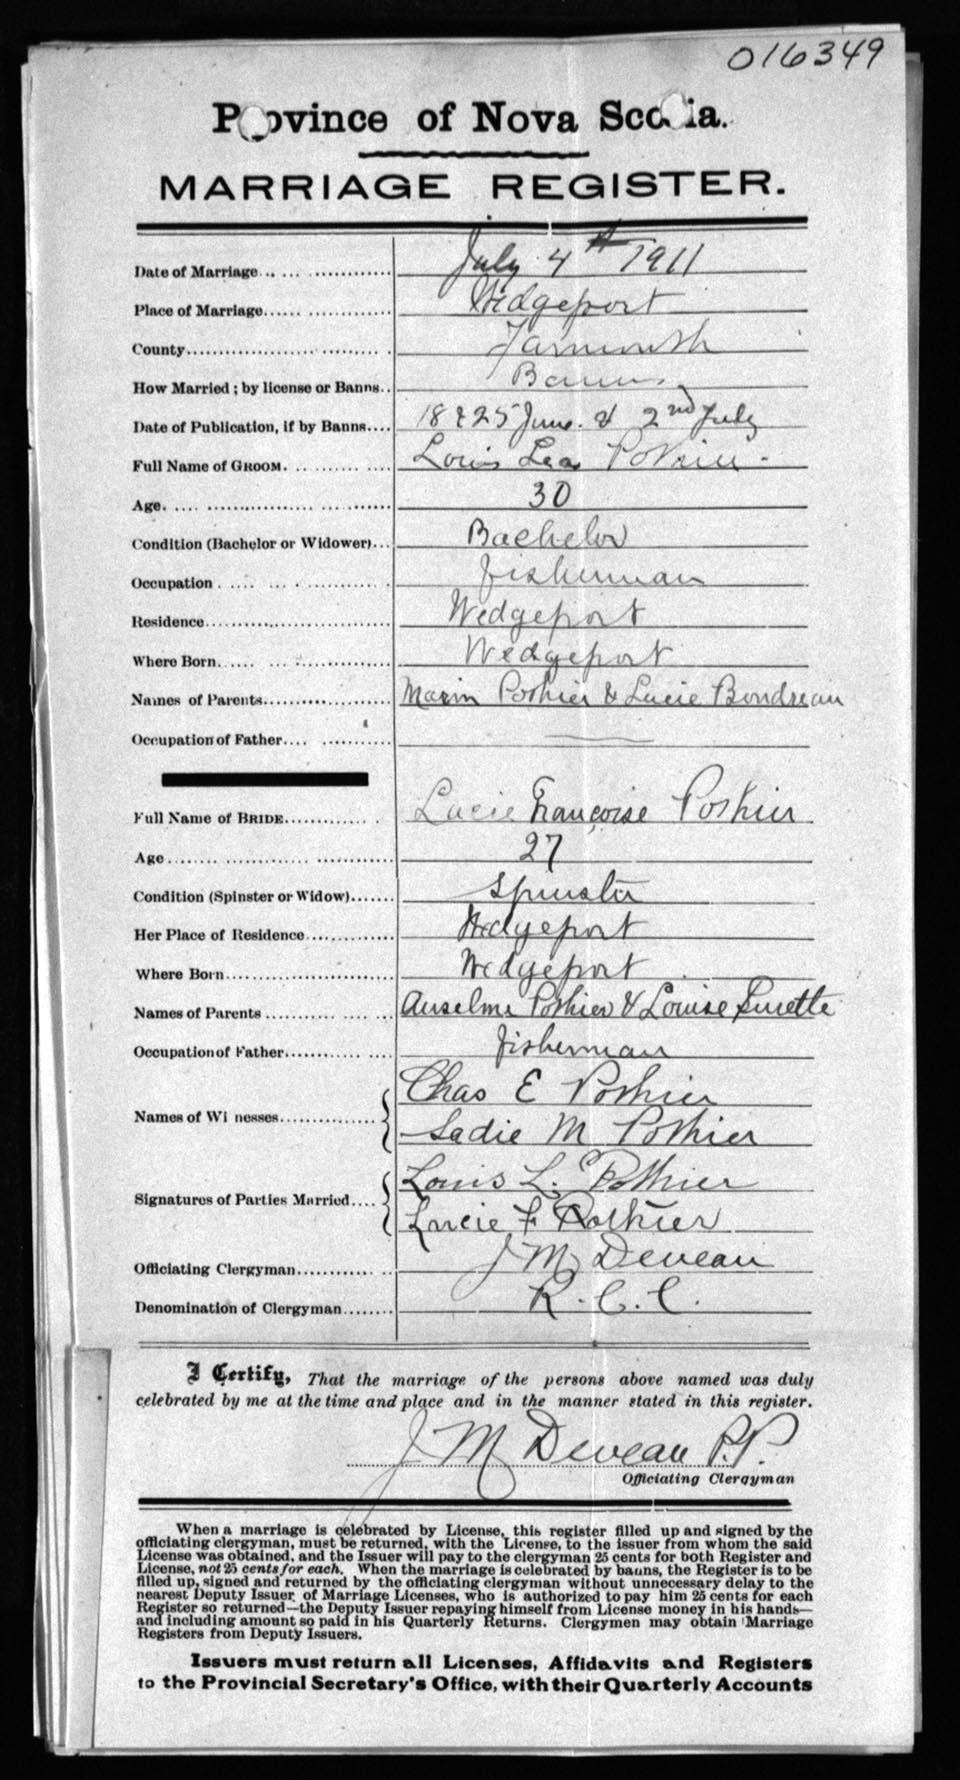 016349
Province of Nova Scotia.
MARRIAGE REGISTER.
Date of Marriage July 4th 1911
Place of Marriage Wedgeport
County Yarmouth
How Married; by license or Banns Banns
Date of Publication, if by Banns 18 & 25 June & 2nd July
Full Name of GROOM Louis Lea Pothier
Age 30
Condition (Bachelor or Widower) Bachelor
Occupation fisherman
Residence Wedgeport
Where Born Wedgeport
Names of Parents Marin Pothier & Lucie Boudreau
Occupation of Father
Full Name of BRIDE Lucie Françoise Pothier
Age 27
Condition (Spinster or Widow) Spinster
Her Place of Residence Wedgeport
Where Born Wedgeport
Names of Parents Anselme Pothier & Louise Surette
Occupation of Father fisherman
Chas E Pothier
Names of Wi nesses
Sadie M Pothier
Louis L. Pothier
Signatures of Parties Married
Lucie F Pothier
Officiating Clergyman J M Deveau
Denomination of Clergyman R.C.C.
I Certify, That the marriage of the persons above named was duly
celebrated by me at the time and place and in the manner stated in this register.
J M Deveau P.P.
Officiating Clergyman
When a marriage is celebrated by License, this register filled up and signed by the
officiating clergyman, must be returned, with the License, to the issuer from whom the said
License was obtained, and the Issuer will pay to the clergyman 25 cents for both Register and
License, not 25 cents for each. When the marriage is celebrated by banns, the Register is to be
filled up, signed and returned by the officiating clergyman without unnecessary delay to the
nearest Deputy Issuer of Marriage Licenses, who is authorized to pay him 25 cents for each
Register so returned—the Deputy Issuer repaying himself from License money in his hands—
and including amount so paid in his Quarterly Returns. Clergymen may obtain Marriage
Registers from Deputy Issuers.
Issuers must return all Licenses, Affidavits and Registers
to the Provincial Secretary's Office, with their Quarterly Accounts